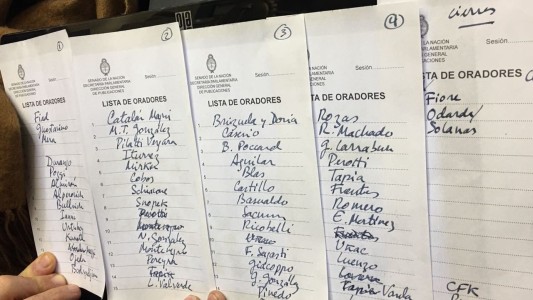 1
LISTA DE ORADORES
Fiad
Guastavino
Mera
Durango
Poggi
Almirón
Alperovich
Bullrich
Ianni
Urtubey
Kunath
Ojeda
Rodríguez
2
SENADO DE LA NACIÓN
SECRETARÍA PARLAMENTARIA
DIRECCIÓN GENERAL
DE PUBLICACIONES
Sesión
LISTA DE ORADORES
Catalán Magni
M.T. González
Pilatti Vergara
Iturrez
Mirkin
Cobos
Schiavoni
Snopek
Perotti
Montenegro
N. González
Montenegro
Pereyra
Tapia
L. Valverde
3
SENADO DE LA NACIÓN
SECRETARÍA PARLAMENTARIA
DIRECCIÓN GENERAL
DE PUBLICACIONES
Sesión
LISTA DE ORADORES
Brizuela y Doria
Caserio
B. Boccard
Aguilar
Blas
Castillo
Basualdo
Sacnun
Pichetti
F. Sagasti
Giacoppo
J. González
Pinedo
4
LA NACIÓN
PARLAMENTARIA
GENERAL
CACIONES
Sesión
DE ORADORES
Rozas
R. Machado
G. Larraburu
Perotti
Tapia
Fuentes
Romero
E. Martínez
Fuentes
Uñac
Luenzo
Lovera
Tapia Varela
cierres
LA NACIÓN
PARLAMENTARIA
GENERAL
CACIONES
Sesión
TA DE ORADORES
Fiore
Odarda
Solanas
CFK